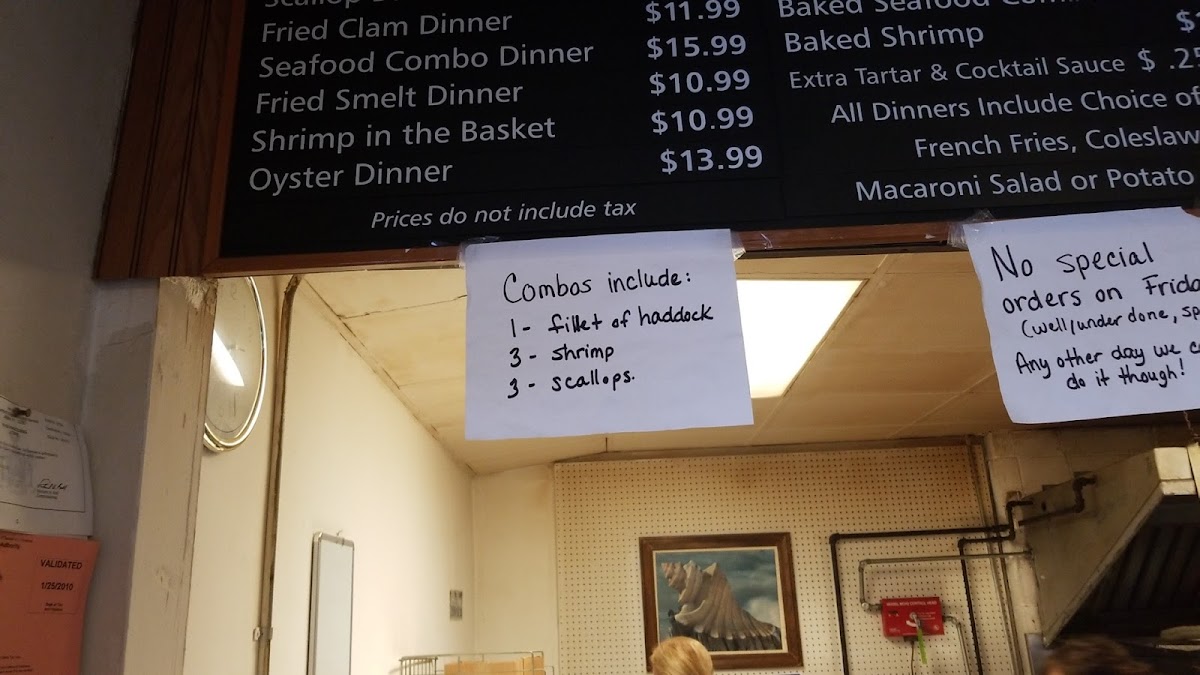 Scallop
Fried Clam Dinner $11.99
Seafood Combo Dinner $15.99
Fried Smelt Dinner $10.99
Shrimp in the Basket $10.99
Oyster Dinner $13.99
Prices do not include tax
Baked Seafood
Baked Shrimp
Extra Tartar & Cocktail Sauce $ .25
All Dinners Include Choice of
French Fries, Coleslaw
Macaroni Salad or Potato
Combos include:
1- fillet of haddock
3- shrimp
3- scallops.
No special
orders on
(well/under done,
Any other day we
do it though!
VALIDATED
1/25/2010